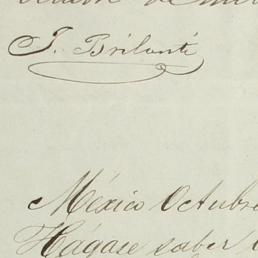 J. Brilanti
México Octubre
Hágase saber